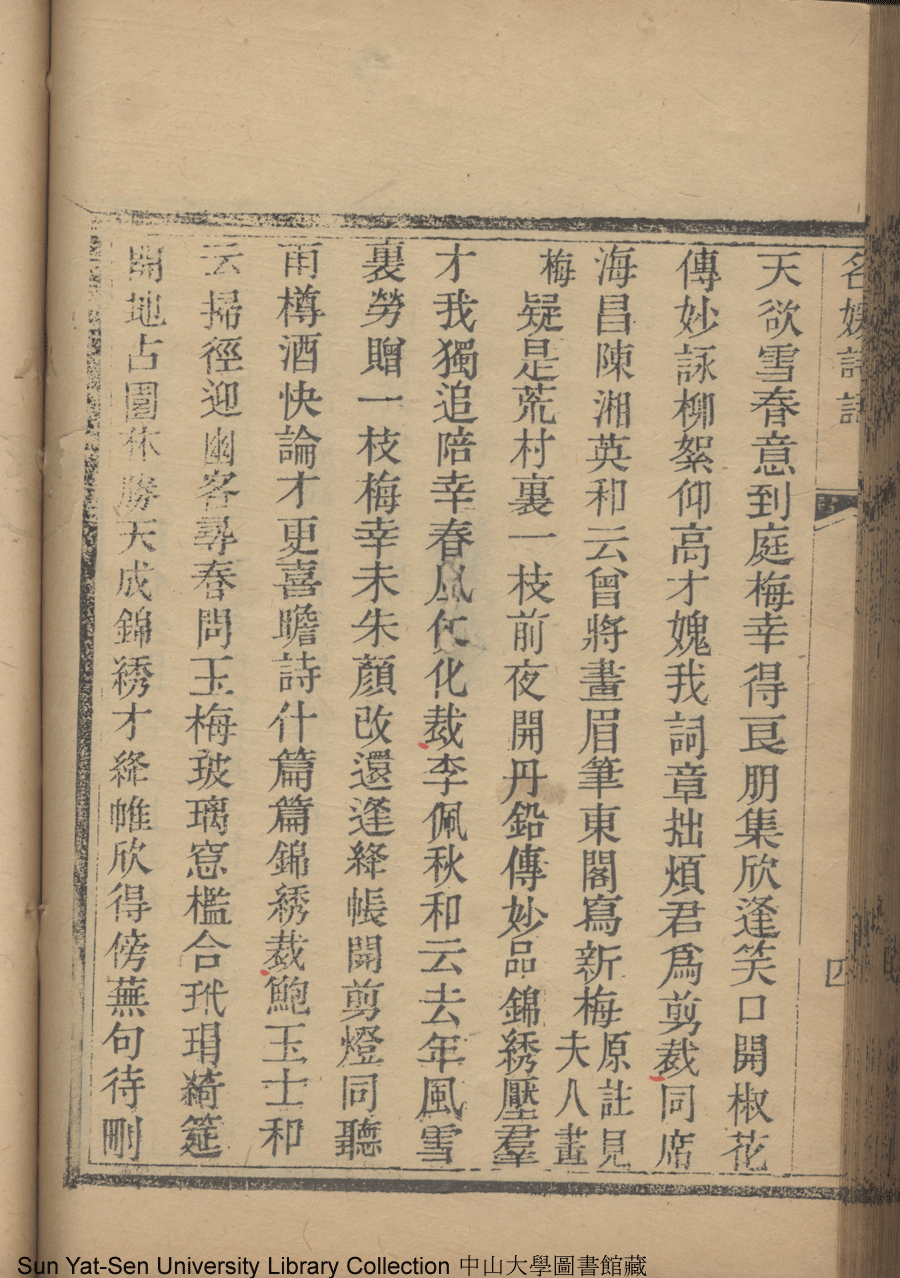 名媛詩話
四
天欲雪春意到庭梅幸得良朋集欣逢笑口開椒花
傳妙詠柳絮仰高才媿我詞章拙煩君爲剪裁同席
海昌陳湘英和云曾將畫眉筆東閣寫新梅原註見夫人畫
梅疑是荒村裏一枝前夜開丹鉛傳妙品錦綉壓羣
才我獨追陪幸春風仗化裁李佩秋和云去年風雪
裏勞贈一枝梅幸未朱顏改還逢絳帳開剪燈同聽
雨樽酒快論才更喜瞻詩什篇篇錦綉裁鮑玉士和
云掃徑迎幽客尋春問玉梅玻璃窓檻合玳瑁綺筵
開地占園林勝天成錦綉才絳帷欣得傍蕪句待剛
Sun Yat-Sen University Library Collection 中山大學圖書館藏